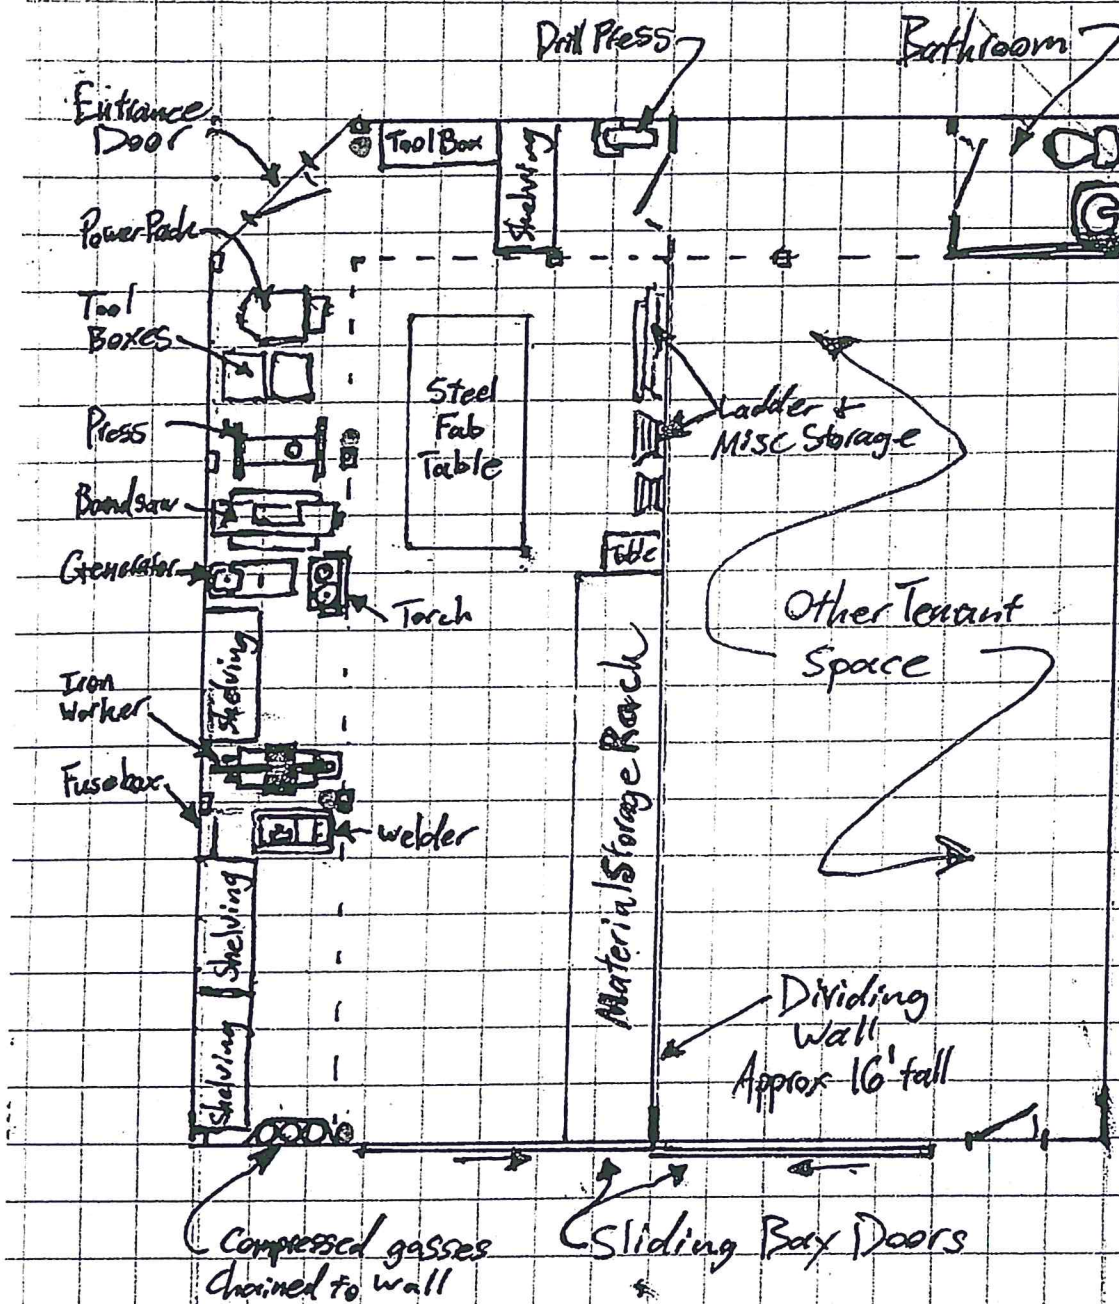 Drill Press
Bathroom
Entrance
Door
Tool Box
Shelving
Power Pack
Tool
Boxes
Steel
Fab
Table
Ladder +
Misc Storage
Press
Bandsaw
Table
Generator
Torch
Other Tenant
Space
Shelving
Iron
Worker
Material Storage Rack
Fusebox
welder
Shelving
Shelving
Dividing
Wall
Approx 16' tall
Compressed gasses
Chained to wall
Sliding Bay Doors